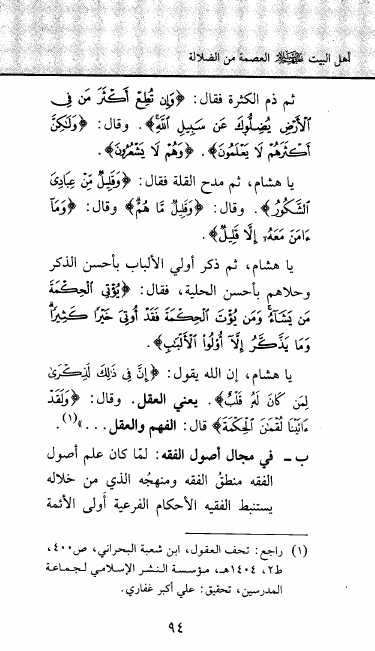 أهل البيت عليهم السلام العصمة من الضلالة
ثم ذم الكثرة فقال: ﴿وَإِن تُطِعْ أَكْثَرَ مَن فِى
الْأَرْضِ يُضِلُّوكَ عَن سَبِيلِ اللَّهِ﴾. وقال: ﴿وَلَٰكِنَّ
أَكْثَرَهُمْ لَا يَعْلَمُونَ﴾. ﴿وَهُمْ لَا يَشْعُرُونَ﴾.
يا هشام، ثم مدح القلة فقال: ﴿وَقَلِيلٌ مِّنْ عِبَادِىَ
الشَّكُورُ﴾. وقال: ﴿وَقَلِيلٌ مَّا هُمْ﴾ وقال: ﴿وَمَا
ءَامَنَ مَعَهُۥ إِلَّا قَلِيلٌ﴾.
يا هشام، ثم ذكر أولي الألباب بأحسن الذكر
وحلاهم بأحسن الحلية، فقال: ﴿يُؤْتِى الْحِكْمَةَ
مَن يَشَآءُ وَمَن يُؤْتَ الْحِكْمَةَ فَقَدْ أُوتِىَ خَيْرًا كَثِيرًا
وَمَا يَذَّكَّرُ إِلَّآ أُو۟لُوا۟ الْأَلْبَٰبِ﴾.
يا هشام، إن الله يقول: ﴿إِنَّ فِى ذَٰلِكَ لَذِكْرَىٰ
لِمَن كَانَ لَهُۥ قَلْبٌ﴾. يعني العقل. وقال: ﴿وَلَقَدْ
ءَاتَيْنَا لُقْمَٰنَ الْحِكْمَةَ﴾ قال: الفهم والعقل...»(١).
ب ـ في مجال أصول الفقه: لمّا كان علم أصول
الفقه منطقُ الفقه ومنهجُه الذي من خلاله
يستنبط الفقيه الأحكام الفرعية أَولى الأئمة
(١) راجع: تحف العقول، ابن شعبة البحراني، ص٤٠٠،
ط٢، ١٤٠٤هـ، مؤسسة النشر الإسلامي لجماعة
المدرسين، تحقيق: علي أكبر غفاري.
٩٤